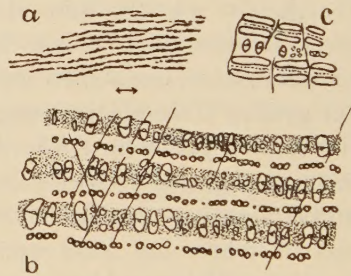 a
c
b